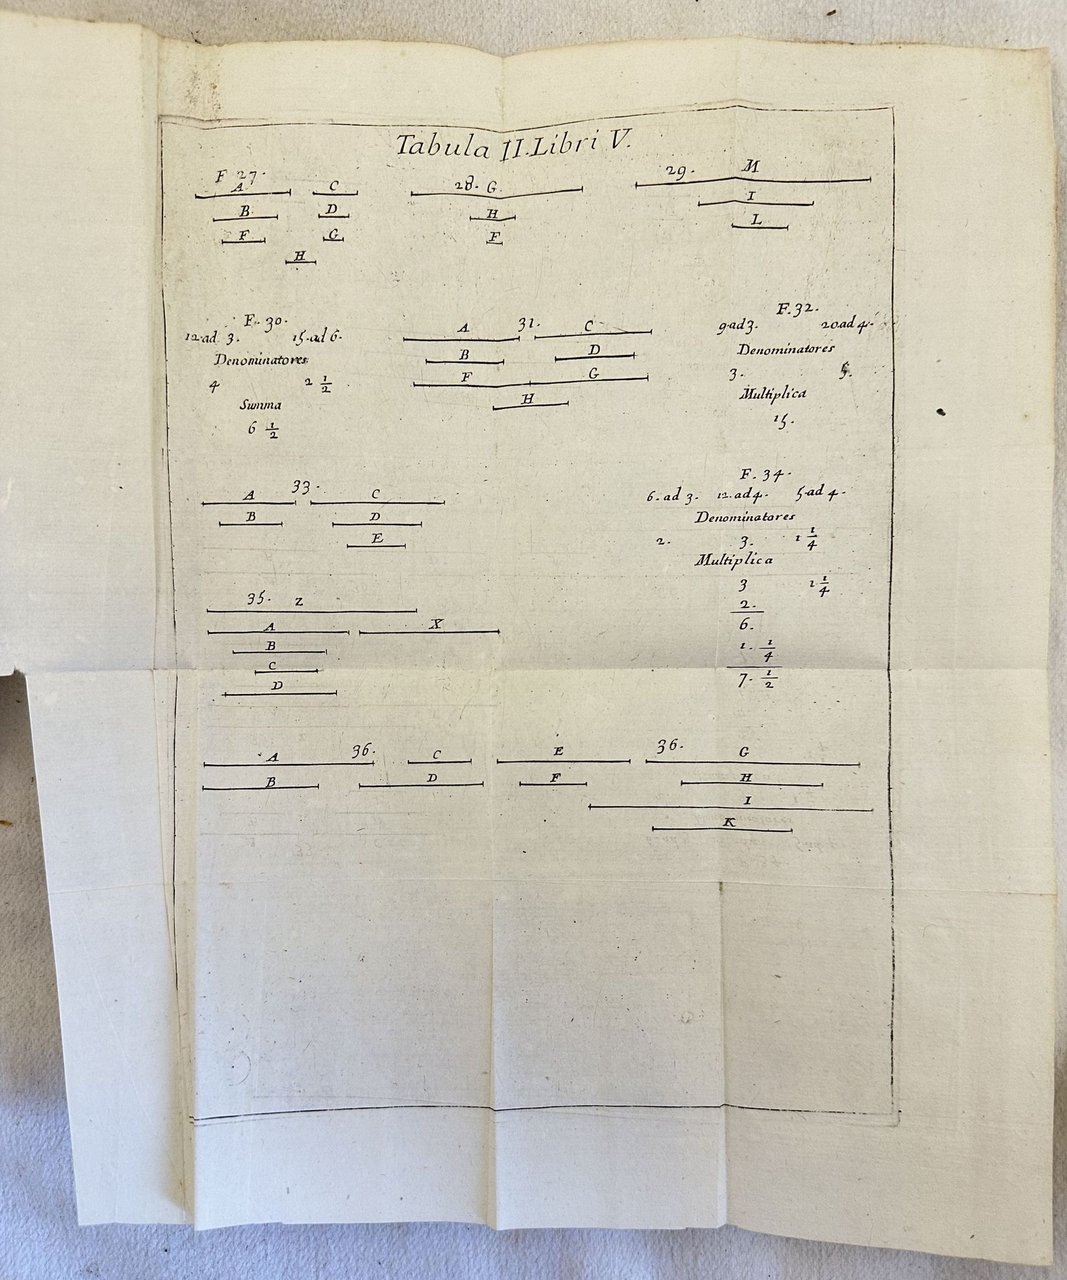 Tabula II. Libri V.
F 27.
A C
B D
F G
H
28. G.
H
F
29. M
I
L
F. 30.
12 ad 3. 15 ad 6.
Denominatores
4 2 1/2
Summa
6 1/2
A 31. C
B D
F G
H
F. 32.
9 ad 3. 20 ad 4.
Denominatores
3. 5.
Multiplica
15.
A 33. C
B D
E
F. 34.
6. ad 3. 12. ad 4. 5 ad 4.
Denominatores
2. 3. 1 1/4
Multiplica
3 1 1/4
2.
6.
1. 1/4
7. 1/2
35. Z
A X
B
C
D
A 36. C
B D
E 36. G
F H
I
K